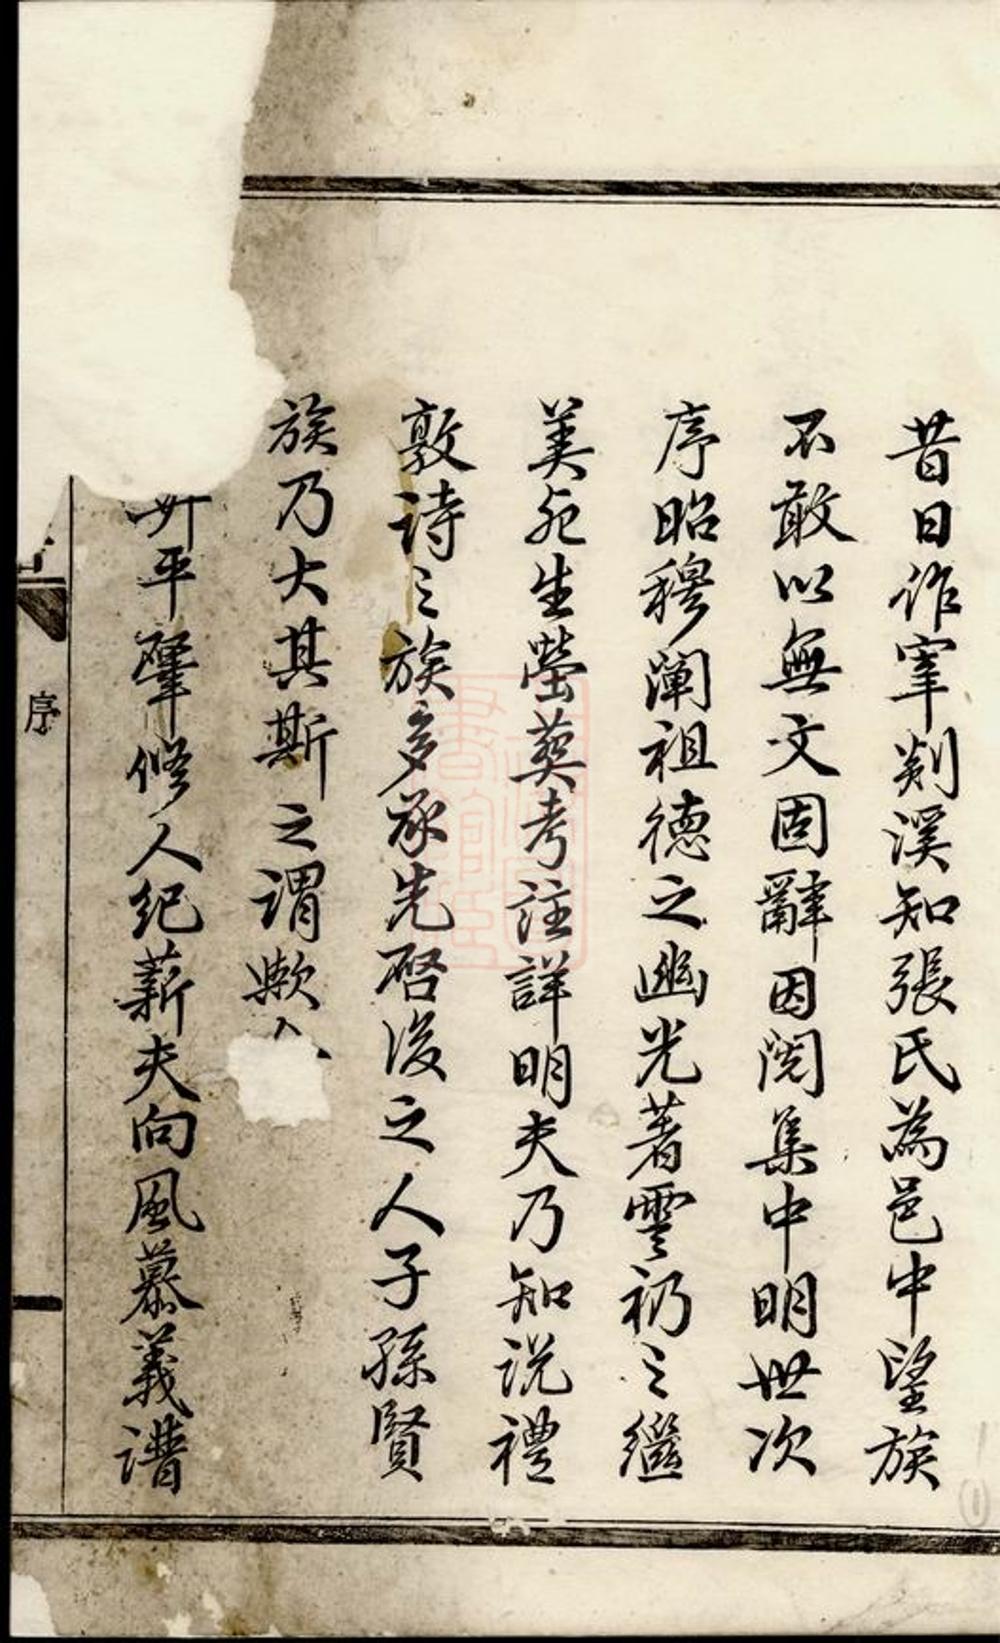 昔日作宰剡溪知張氏為邑中望族
不敢以無文固辭因閱集中明世次
序昭穆闡祖德之幽光著雲礽之繼
美死生塋葵考註詳明夫乃知説禮
敦詩之族多承先啓後之人子孫賢
族乃大其斯之謂歟
平肇修人紀薪夫向風慕義譜
序